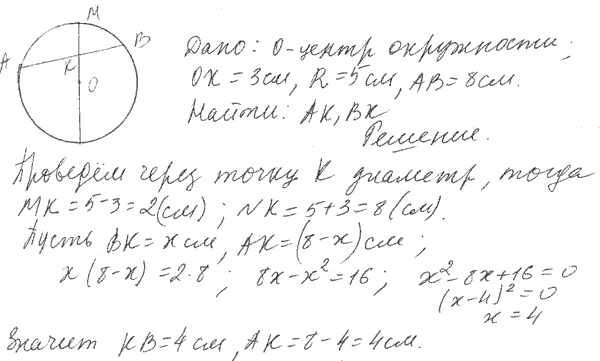 M
A
B
K
O
Дано: О-центр окружности;
OK = 3см, R = 5см, AB = 8см.
Найти: AK, BK
Решение.
Проведём через точку K диаметр, тогда
MK = 5-3 = 2(см); NK = 5+3 = 8(см).
Пусть BK = x см, AK = (8-x) см;
x(8-x) = 2·8; 8x-x² = 16; x²-8x+16 = 0
(x-4)² = 0
x = 4
Значит KB = 4 см, AK = 8-4 = 4см.